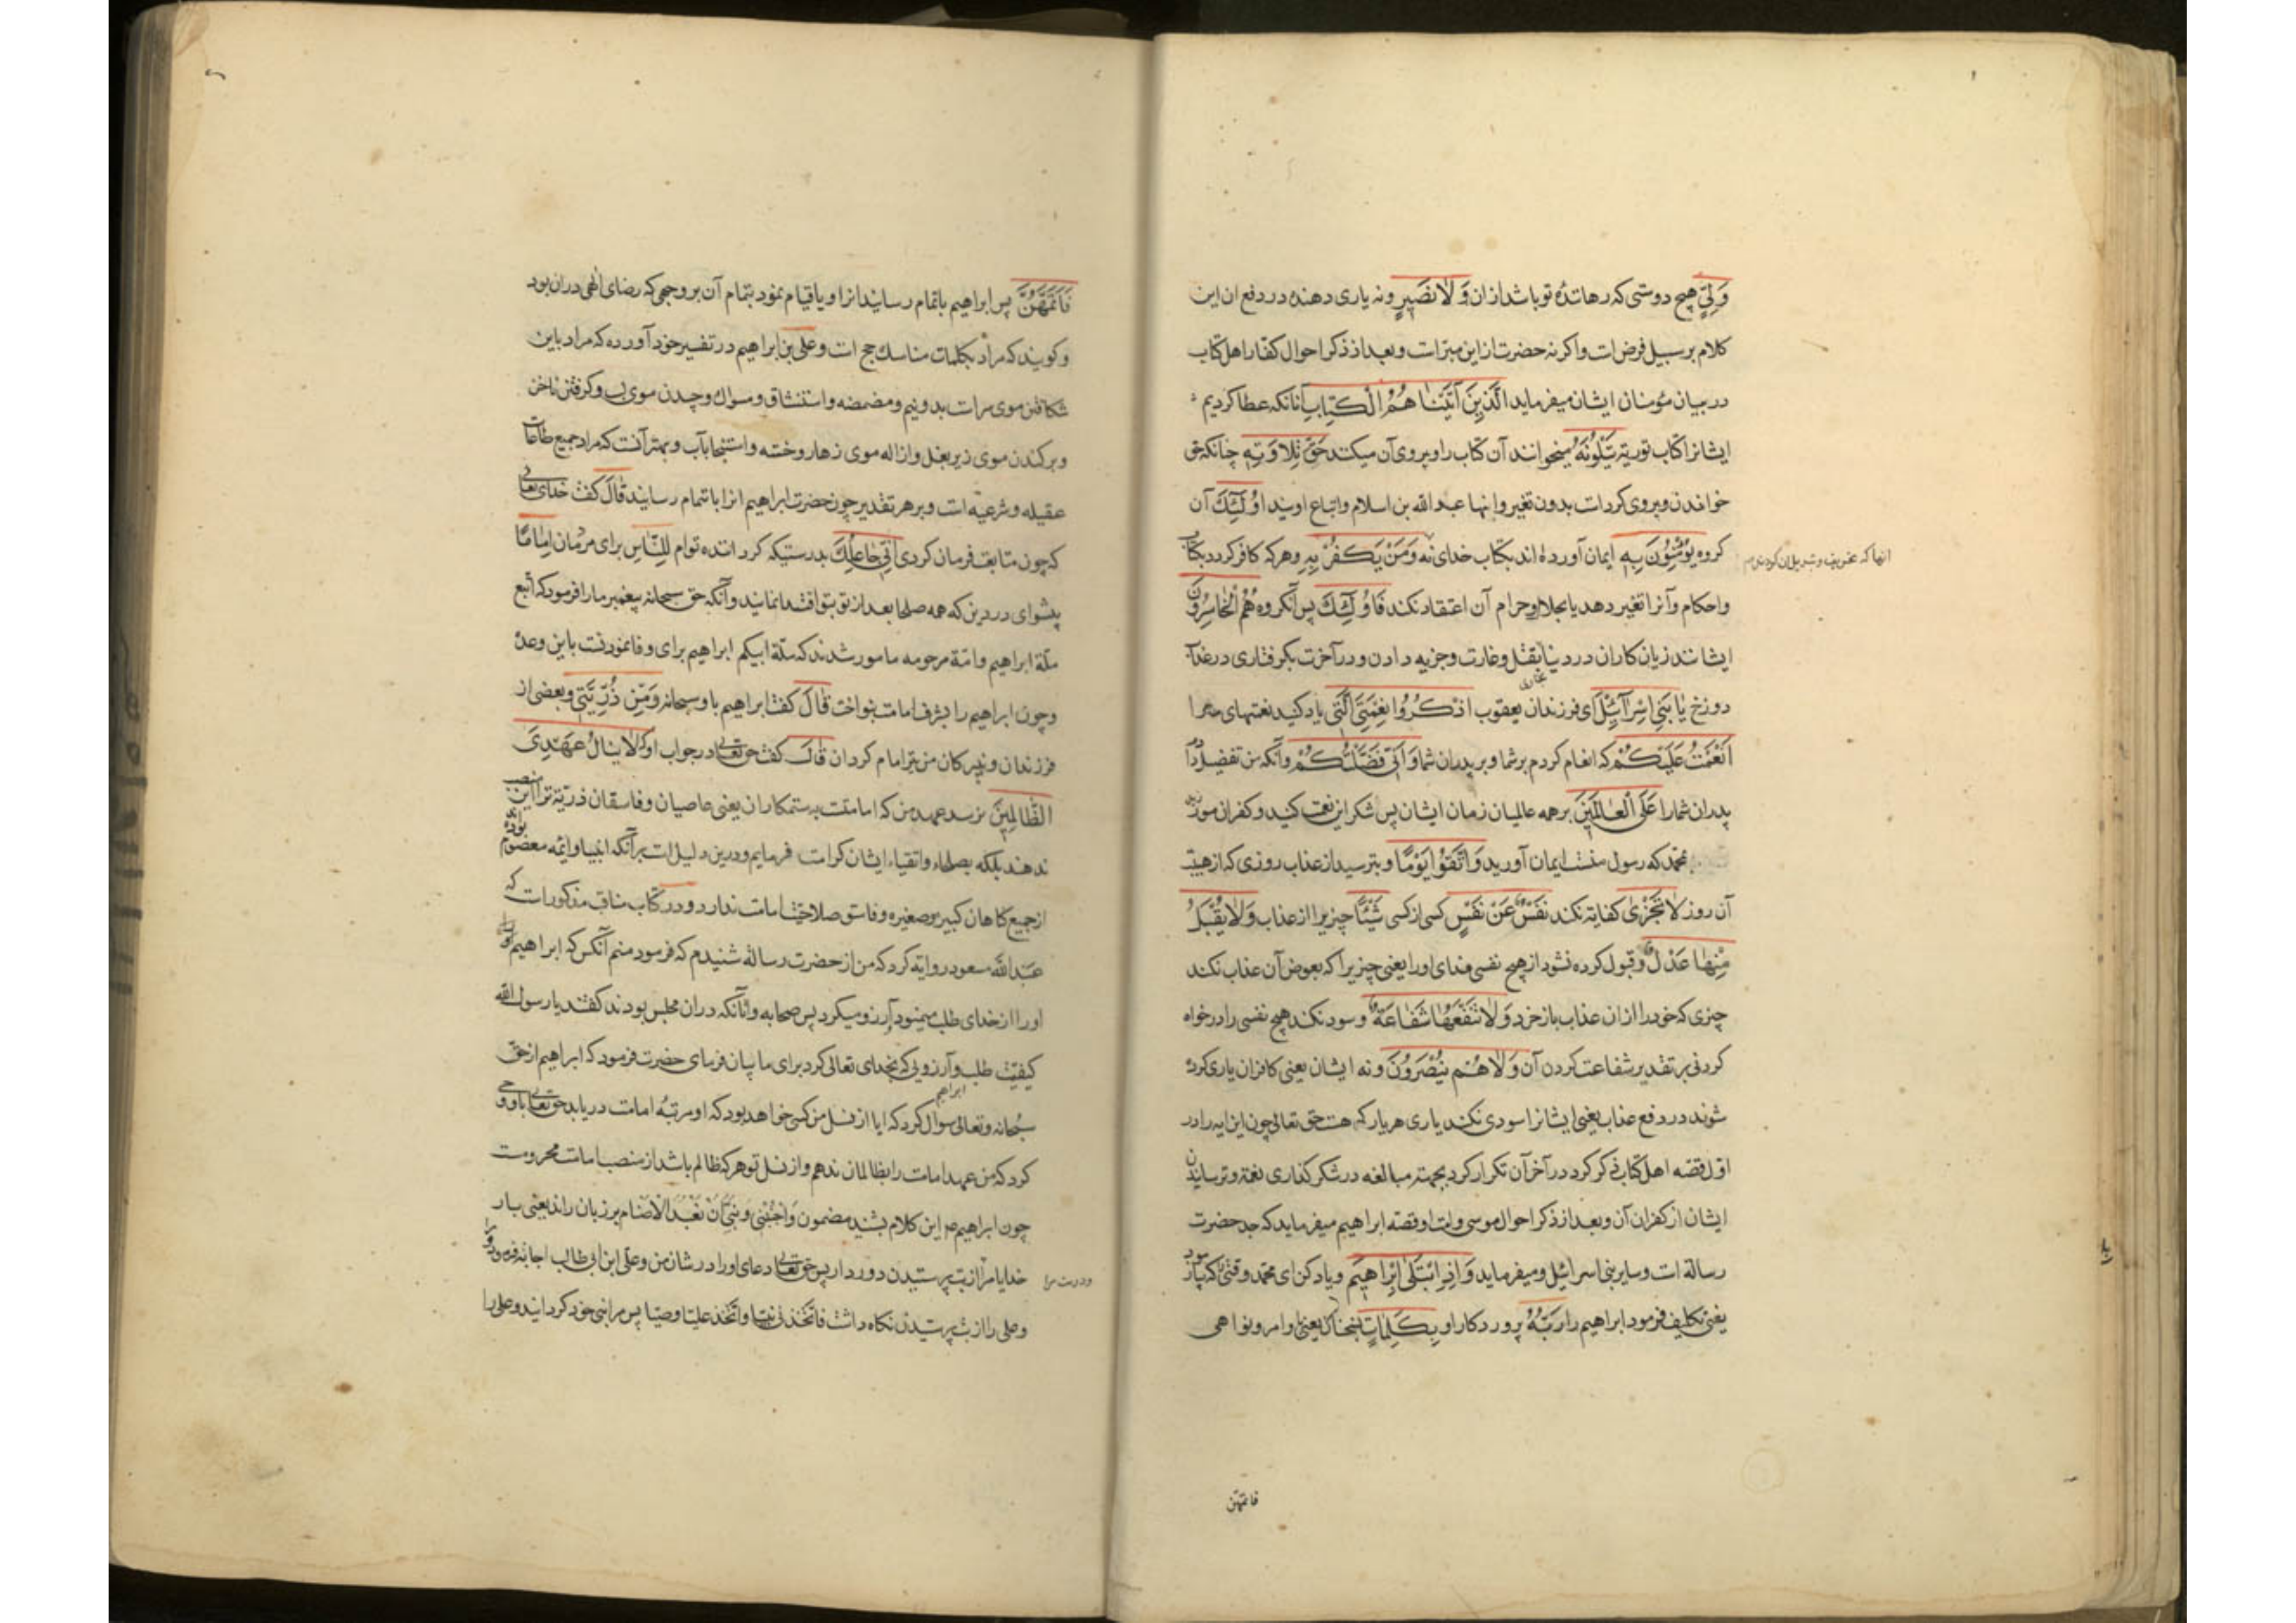 وَلِیٍّ هیچ دوستی که رهاننده تو باشد ازان وَلَا نَصِیرٍ ونه یاری دهنده در دفع ان این
کلام بر سبیل فرض است واکر نه حضرت ازاین مبرّاست وبعد از ذکر احوال کفّار اهل کتاب
در بیان مؤمنان ایشان میفرماید الَّذِینَ آتَیْنَاهُمُ الْکِتَابَ آنانکه عطا کردیم
ایشانرا کتاب توریة یَتْلُونَهُ میخوانند آن کتاب را وپیروی آن میکنند حَقَّ تِلَاوَتِهِ چنانکه حق
خواندن وپیروی کردنست بدون تغیر واینها عبد الله بن اسلام واتباع اویند اُولٰئِكَ آن
کروه یُؤْمِنُونَ بِهِ ایمان آورده اند بکتاب خدای نه وَمَنْ یَکْفُرْ بِهِ وهرکه کافر کردد بکتاب
واحکام وآنرا تغیر دهد یا بحلال وحرام آن اعتقاد نکند فَاُولٰئِكَ پس آنکروه هُمُ الْخَاسِرُونَ
ایشانند زیان کاران در دنیا بقتل وغارت وجزیه دادن ودر آخرت بکرفتاری در عذاب
دوزخ یَا بَنِی اِسْرَآئِیلَ ای فرزندان یعقوب اذْکُرُوا نِعْمَتِیَ الَّتِی یاد کنید نعتمهای مرا
اَنْعَمْتُ عَلَیْکُمْ که انعام کردم بر شما وبر پدران شما وَاَنِّی فَضَّلْتُکُمْ وآنکه من تفضیل دادم
پدران شمارا عَلَی الْعَالَمِینَ بر همه عالمیان زمان ایشان پس شکر این نعمت کنید وکفران مورزید
بمحمّد که رسول منست ایمان آورید وَاتَّقُوا یَوْمًا وبترسید از عذاب روزی که از هیبت
آن روز لَا تَجْزِی کفایة نکند نَفْسٌ عَنْ نَفْسٍ کسی از کسی شَیْئًا چیزیرا از عذاب وَلَا یُقْبَلُ
مِنْهَا عَدْلٌ وقبول کرده نشود از هیچ نفسی فدای اورا یعنی چیزیرا که بعوض آن عذاب نکند
چیزی که خودرا از ان عذاب باز خرد وَلَا تَنْفَعُهَا شَفَاعَةٌ وسود نکند هیچ نفسی را درخواه
کردنی بر تقدیر شفاعت کردن آن وَلَا هُمْ یُنْصَرُونَ ونه ایشان یعنی کافران یاری کرده
شوند در دفع عذاب یعنی ایشانرا سودی نکند یاری هر یار که هست حق تعالی چون این ایه را در
اوّل قصّه اهل کتاب ذکر کرد در آخر آن تکرار کرد بجهة مبالغه در شکر کذاری نعمة وترسانیدن
ایشان از کفران آن وبعد از ذکر احوال موسی وامّت او قصّه ابراهیم میفرماید که جد حضرت
رسالة است وسایر بنی اسرائیل ومیفرماید وَاِذِ ابْتَلٰی اِبْرَاهِیمَ ویاد کن ای محمد وقتی را که بیازمود
یعنی تکلیف فرمود ابراهیم را رَبُّهُ پروردکار او بِکَلِمَاتٍ بسخنان یعنی اوامر ونواهی
فاتمهن
فَاَتَمَّهُنَّ پس ابراهیم باتمام رسانید انرا ویا قیام نمود بتمام آن بر وجهی که رضای الهی دران بود
وکویند که مراد بکلمات مناسك حج است وعلی بن ابراهیم در تفسیر خود آورده که مراد باین
شکافتن موی سراست بدو نیم ومضمضه واستنشاق ومسواك وچیدن موی لب وکرفتن ناخن
وبرکندن موی زیر بغل وازاله موی زهار وختنه واستنجا بآب وبهتر آنست که مراد جمیع طاعات
عقیله وشرعیّه است وبر هر تقدیر چون حضرت ابراهیم انرا باتمام رسانید قَالَ کفت خدای تعالی
که چون متابعت فرمان کردی اِنِّی جَاعِلُكَ بدرستیکه کرداننده توام لِلنَّاسِ برای مردمان اِمَامًا
پیشوای در دین که همه صلحا بعد از تو بتو اقتدا نمایند وآنکه حق سبحانه پیغمبر مارا فرمود که اتبع
ملّة ابراهیم وامّة مرحومه مامور شدند که ملّة ابیکم ابراهیم برای وفا نمودنست باین وعده
وچون ابراهیم را بشرف امامت بنواخت قَالَ کفت ابراهیم با و سبحانه وَمِنْ ذُرِّیَّتِی وبعضی از
فرزندان ونبیرکان من نیز امام کردان قَالَ کفت حق تعالی در جواب او که لَا یَنَالُ عَهْدِیَ
الظَّالِمِینَ نرسد عهد من که امامتست به ستمکاران یعنی عاصیان وفاسقان ذریّة ترا این منصب
ندهند بلکه بصلحاء واتقیاء ایشان کرامت فرمایم ودرین دلیل است برآنکه انبیا وائمّه معصوم بوده اند
از جمیع کناهان کبیره وصغیره وفاسق صلاحیّت امامت ندارد ودر کتاب مناقب مذکور است که
عبد الله مسعود روایة کرد که من از حضرت رسالة شنیدم که فرمود منم آنکس که ابراهیم
اورا از خدای طلب مینمود وآرزو میکرد پس صحابه وآنانکه دران مجلس بودند کفتند یا رسول الله
کیفیّت طلب وآرزویی که بخدای تعالی کرد برای ما بیان فرمای حضرت فرمود که ابراهیم از حق
سبحانه وتعالی سوال کرد که ایا از نسل من کسی خواهد بود که او مرتبه امامت دریابد حق تعالی باو وحی
کرد که من عهد امامت را بظالمان ندهم واز نسل تو هرکه ظالم باشد از منصب امامت محرومست
چون ابراهیم این کلام بشنید مضمون وَاجْنُبْنِی وَبَنِیَّ اَنْ نَعْبُدَ الْاَصْنَامَ بر زبان راند یعنی بار
خدایا مرا از بت پرستیدن دور دار پس حق تعالی دعای اورا در شان من وعلی ابن ابی طالب اجابة فرمود
وعلی را از بت پرستیدن نکاه داشت فاتّخذنی نبیّا واتّخذ علیّا وصیّا پس مرا نبی خود کردانید وعلی را